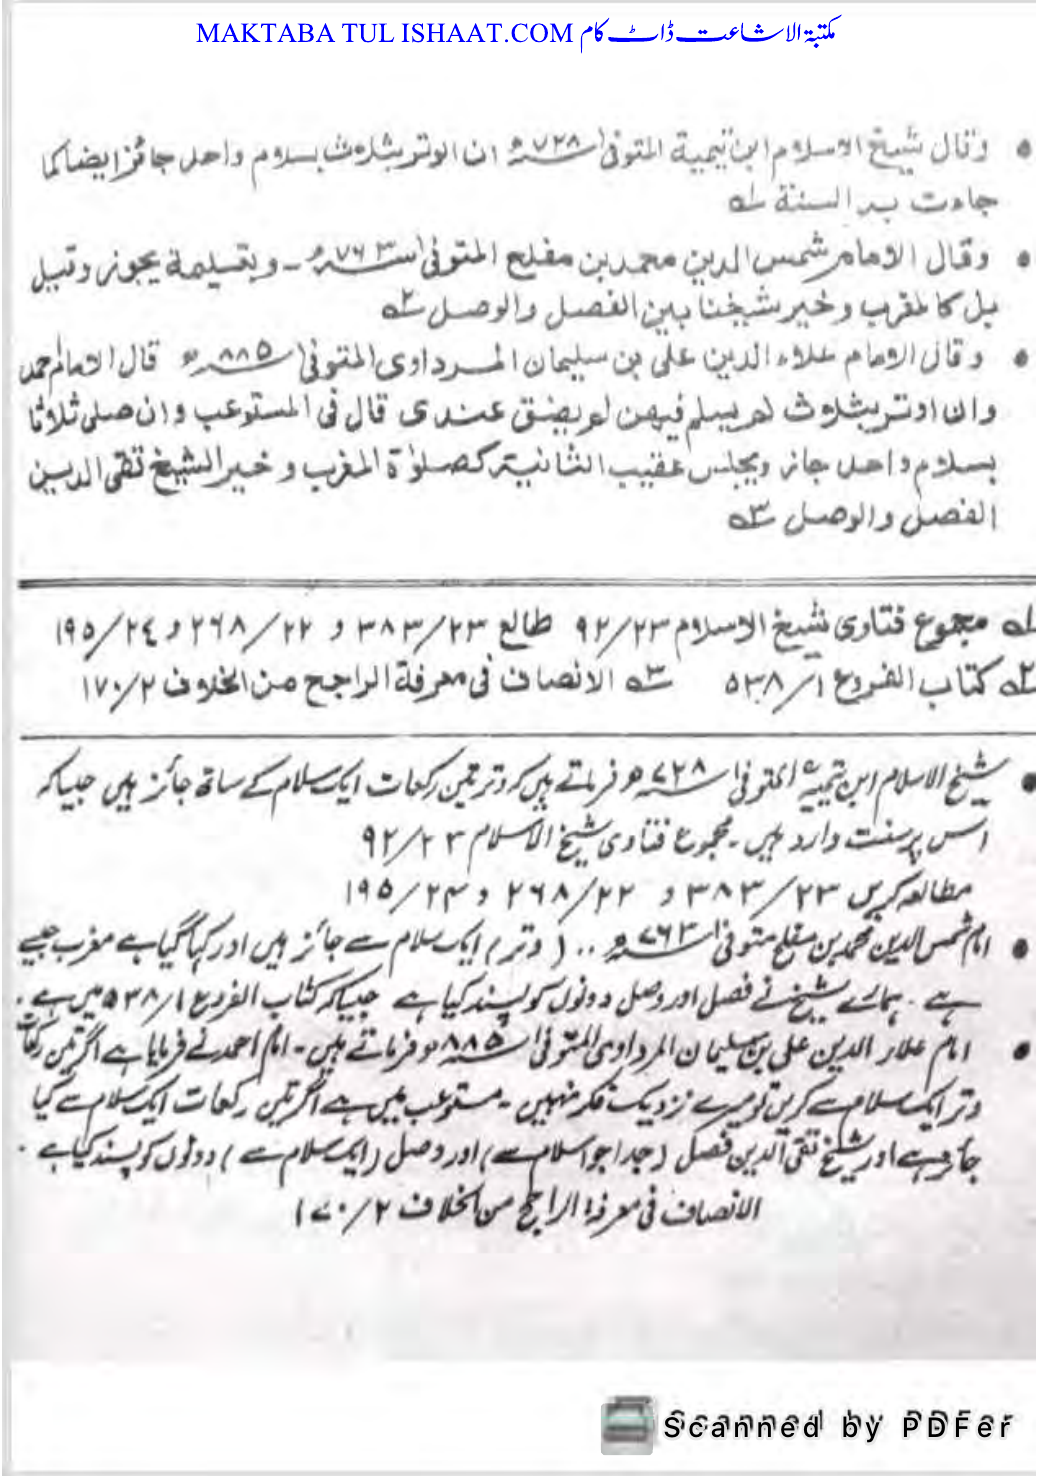 MAKTABA TUL ISHAAT.COM مکتبۃ الاشاعت ڈاٹ کام
• وقال شيخ الاسلام ابن تيمية المتوفى ۷۲۸ھ ان الوتر بثلاث بسلام واحد جائز ايضا كما
جاءت به السنة ۱ھ
• وقال الامام شمس الدين محمد بن مفلح المتوفى ۷۶۳ھ ۔ وبتسليمة يجوز وقيل
بل كالمغرب وخير شيخنا بين الفصل والوصل ۲ھ
• وقال الامام علاء الدين على بن سليمان المرداوى المتوفى ۸۸۵ھ قال الامام احمد
وان اوتر بثلاث لم يسلم فيهن لم يضق عندى قال فى المستوعب وان صلى ثلاثا
بسلام واحد جاز ويجلس عقيب الثانية كصلوٰة المغرب وخير الشيخ تقى الدين
الفصل والوصل ۳ھ
۱ھ مجموع فتاوى شيخ الاسلام ۹۲/۲۳ طالع ۳۸۳/۲۳ و ۲۶۸/۲۲ و ۱۹۵/۲٤
۲ھ كتاب الفروع ۵۳۸/۱ ۳ھ الانصاف فى معرفة الراجح من الخلاف ۱۷۰/۲
• شیخ الاسلام ابن تیمیہؒ المتوفی ۷۲۸ھ فرماتے ہیں کہ وتر تین رکعات ایک سلام کے ساتھ جائز ہیں جیسا کہ
اس پر سنت وارد ہیں ۔ مجموع فتاوی شیخ الاسلام ۹۲/۲۳
مطالعہ کریں ۳۸۳/۲۳ و ۲۶۸/۲۲ و ۱۹۵/۲۴
• امام شمس الدین محمد بن مفلح متوفی ۷۶۳ھ .. (وتر) ایک سلام سے جائز ہیں اور کہا گیا ہے مغرب جیسے
ہے ۔ ہمارے شیخ نے فصل اور وصل دونوں کو پسند کیا ہے جیسا کہ کتاب الفروع ۵۳۸/۱ میں ہے ۔
• امام علاء الدین علی بن سلیمان المرداوی المتوفی ۸۸۵ھ فرماتے ہیں ۔ امام احمد نے فرمایا ہے اگر تین رکعات
وتر ایک سلام سے کریں تو میرے نزدیک فکر نہیں ۔ مستوعب میں ہے اگر تین رکعات ایک سلام سے کیا
جائز ہے اور شیخ تقی الدین فصل (جدا جدا سلام سے) اور وصل (ایک سلام سے) دونوں کو پسند کیا ہے ۔
الانصاف فی معرفۃ الراجح من الخلاف ۱۷۰/۲
Scanned by PDFer